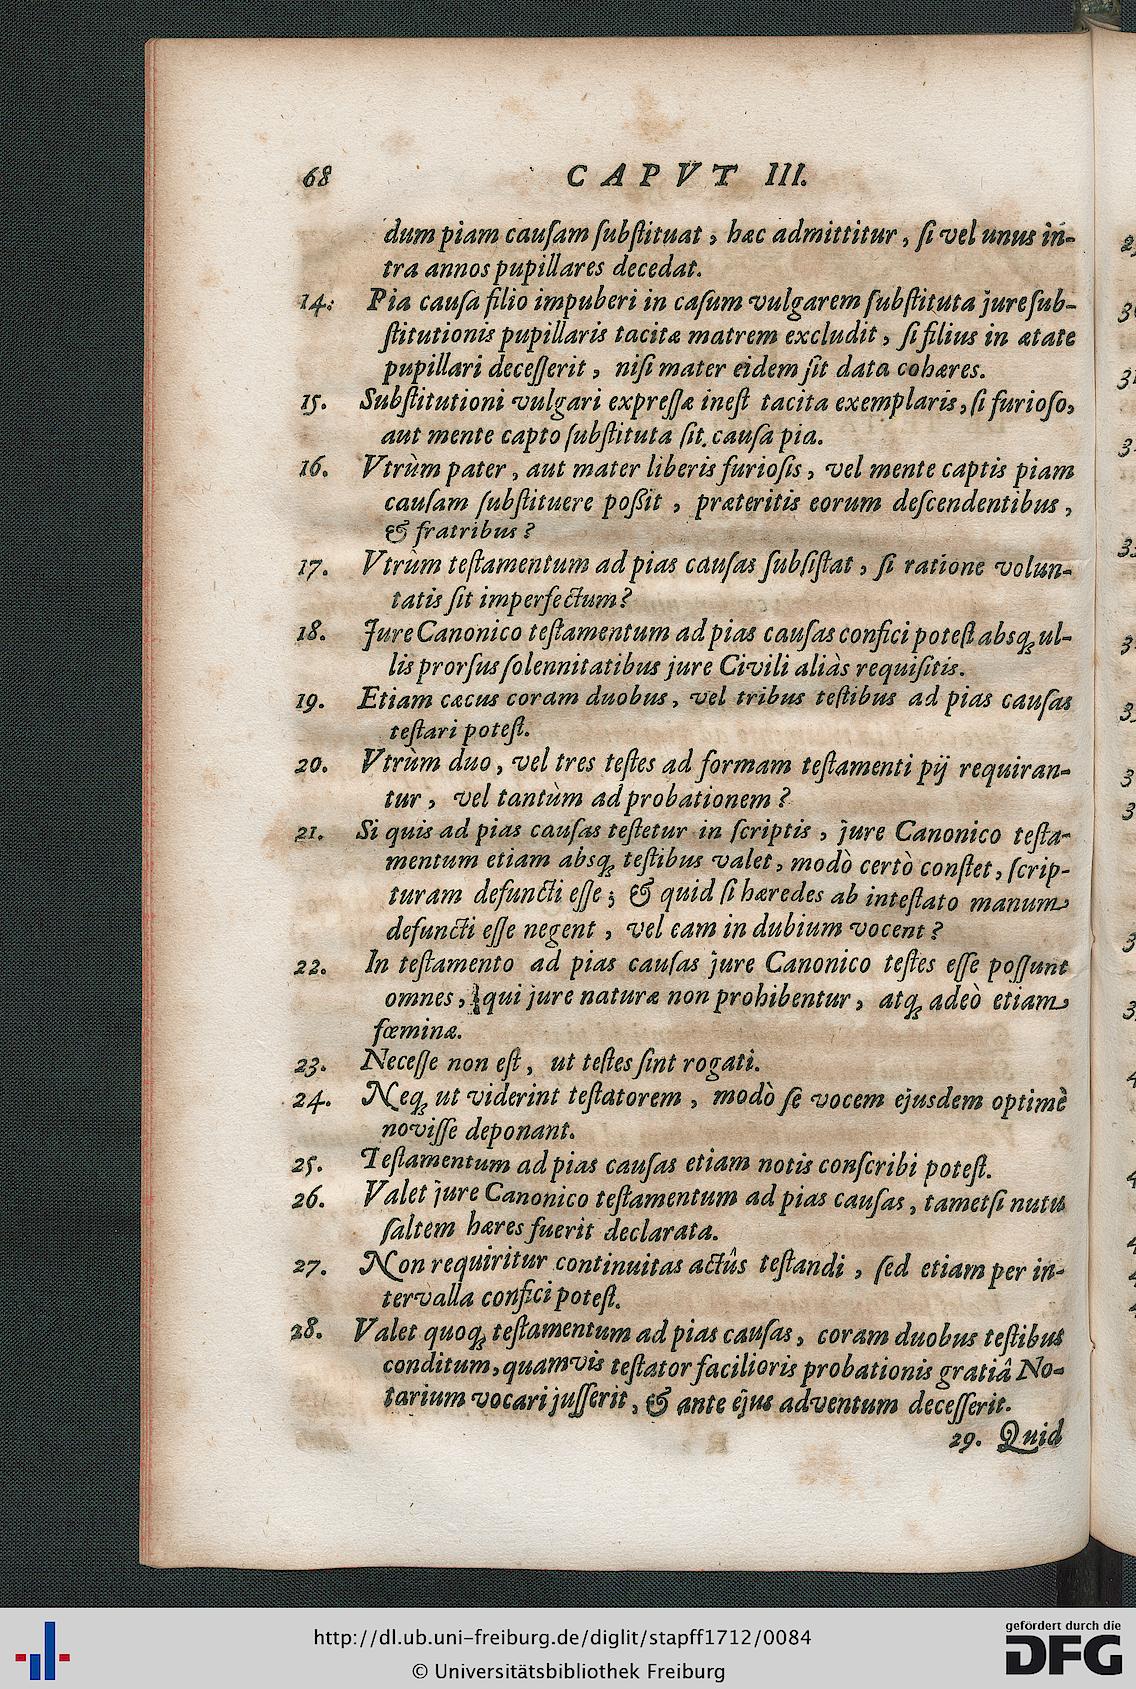 68 CAPVT III.
dum piam cauſam ſubſtituat, hæc admittitur, ſi vel unus in-
tra annos pupillares decedat.
14. Pia cauſa filio impuberi in caſum vulgarem ſubſtituta jure ſub-
ſtitutionis pupillaris tacitæ matrem excludit, ſi filius in ætate
pupillari deceſſerit, niſi mater eidem ſit data cohæres.
15. Subſtitutioni vulgari expreſſæ ineſt tacita exemplaris, ſi furioſo,
aut mente capto ſubſtituta ſit cauſa pia.
16. Vtrùm pater, aut mater liberis furioſis, vel mente captis piam
cauſam ſubſtituere poßit, præteritis eorum deſcendentibus,
& fratribus?
17. Vtrùm teſtamentum ad pias cauſas ſubſiſtat, ſi ratione volun-
tatis ſit imperfectum?
18. Jure Canonico teſtamentum ad pias cauſas confici poteſt absq; ul-
lis prorſus ſolennitatibus jure Civili aliàs requiſitis.
19. Etiam cæcus coram duobus, vel tribus teſtibus ad pias cauſas
teſtari poteſt.
20. Vtrùm duo, vel tres teſtes ad formam teſtamenti pij requiran-
tur, vel tantùm ad probationem?
21. Si quis ad pias cauſas teſtetur in ſcriptis, jure Canonico teſta-
mentum etiam absq; teſtibus valet, modò certò conſtet, ſcrip-
turam defuncti eſſe; & quid ſi hæredes ab inteſtato manum
defuncti eſſe negent, vel eam in dubium vocent?
22. In teſtamento ad pias cauſas jure Canonico teſtes eſſe poſſunt
omnes, qui jure naturæ non prohibentur, atq; adeò etiam
fœminæ.
23. Neceſſe non eſt, ut teſtes ſint rogati.
24. Neq; ut viderint teſtatorem, modò ſe vocem ejusdem optimè
noviſſe deponant.
25. Teſtamentum ad pias cauſas etiam notis conſcribi poteſt.
26. Valet jure Canonico teſtamentum ad pias cauſas, tametſi nutu
ſaltem hæres fuerit declarata.
27. Non requiritur continuitas actûs teſtandi, ſed etiam per in-
tervalla confici poteſt.
28. Valet quoq; teſtamentum ad pias cauſas, coram duobus teſtibus
conditum, quamvis teſtator facilioris probationis gratiâ No-
tarium vocari juſſerit, & ante ejus adventum deceſſerit.
29. Quid
http://dl.ub.uni-freiburg.de/diglit/stapff1712/0084
© Universitätsbibliothek Freiburg
gefördert durch die
DFG